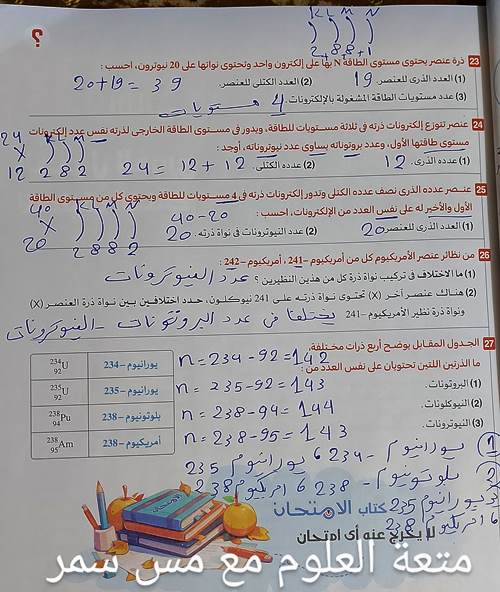 K L M N
2 8 8 1
23 ذرة عنصر يحتوى مستوى الطاقة N بها على إلكترون واحد وتحتوى نواتها على 20 نيوترون، احسب :
(1) العدد الذرى للعنصر. 19 (2) العدد الكتلى للعنصر. 39 = 19+20
(3) عدد مستويات الطاقة المشغولة بالإلكترونات. 4 مستويات
24 عنصر تتوزع إلكترونات ذرته فى ثلاثة مستويات للطاقة، ويدور فى مستوى الطاقة الخارجى لذرته نفس عدد إلكترونات
مستوى طاقتها الأول، وعدد بروتوناته يساوى عدد نيوتروناته، أوجد :
24 X 12 K L M 2 8 2
(1) عدده الذرى. 12 (2) عدده الكتلى. 24 = 12 + 12
25 عنصر عدده الذرى نصف عدده الكتلى وتدور إلكترونات ذرته فى 4 مستويات للطاقة ويحتوى كل من مستوى الطاقة
الأول والأخير له على نفس العدد من الإلكترونات، احسب :
40 X 20 K L M N 2 8 8 2
40-20
(1) العدد الذرى للعنصر. 20 (2) عدد النيوترونات فى نواة ذرته. 20
26 من نظائر عنصر الأمريكيوم كل من أمريكيوم -241، أمريكيوم -242 :
(1) ما الاختلاف فى تركيب نواة ذرة كل من هذين النظيرين ؟ عدد النيوترونات
(2) هناك عنصر آخر (X) تحتوى نواة ذرته على 241 نيوكلون، حدد اختلافين بين نواة ذرة العنصر (X)
ونواة ذرة نظير الأمريكيوم -241 يختلفا فى عدد البروتونات - النيوترونات
27 الجدول المقابل يوضح أربع ذرات مختلفة،
ما الذرتين اللتين تحتويان على نفس العدد من :
(1) البروتونات.
(2) النيوكلونات.
(3) النيوترونات.
يورانيوم -234 234 92 U
يورانيوم -235 235 92 U
بلوتونيوم -238 238 94 Pu
أمريكيوم -238 238 95 Am
n = 234 - 92 = 142
n = 235 - 92 = 143
n = 238 - 94 = 144
n = 238 - 95 = 143
1 يورانيوم - 234 6 يورانيوم 235
2 بلوتونيوم - 238 6 امريكيوم 238
3 يورانيوم 235
6 امريكيوم 238
الامتحان
كتاب الامتحان
لا يخرج عنه أى امتحان
متعة العلوم مع مس سمر